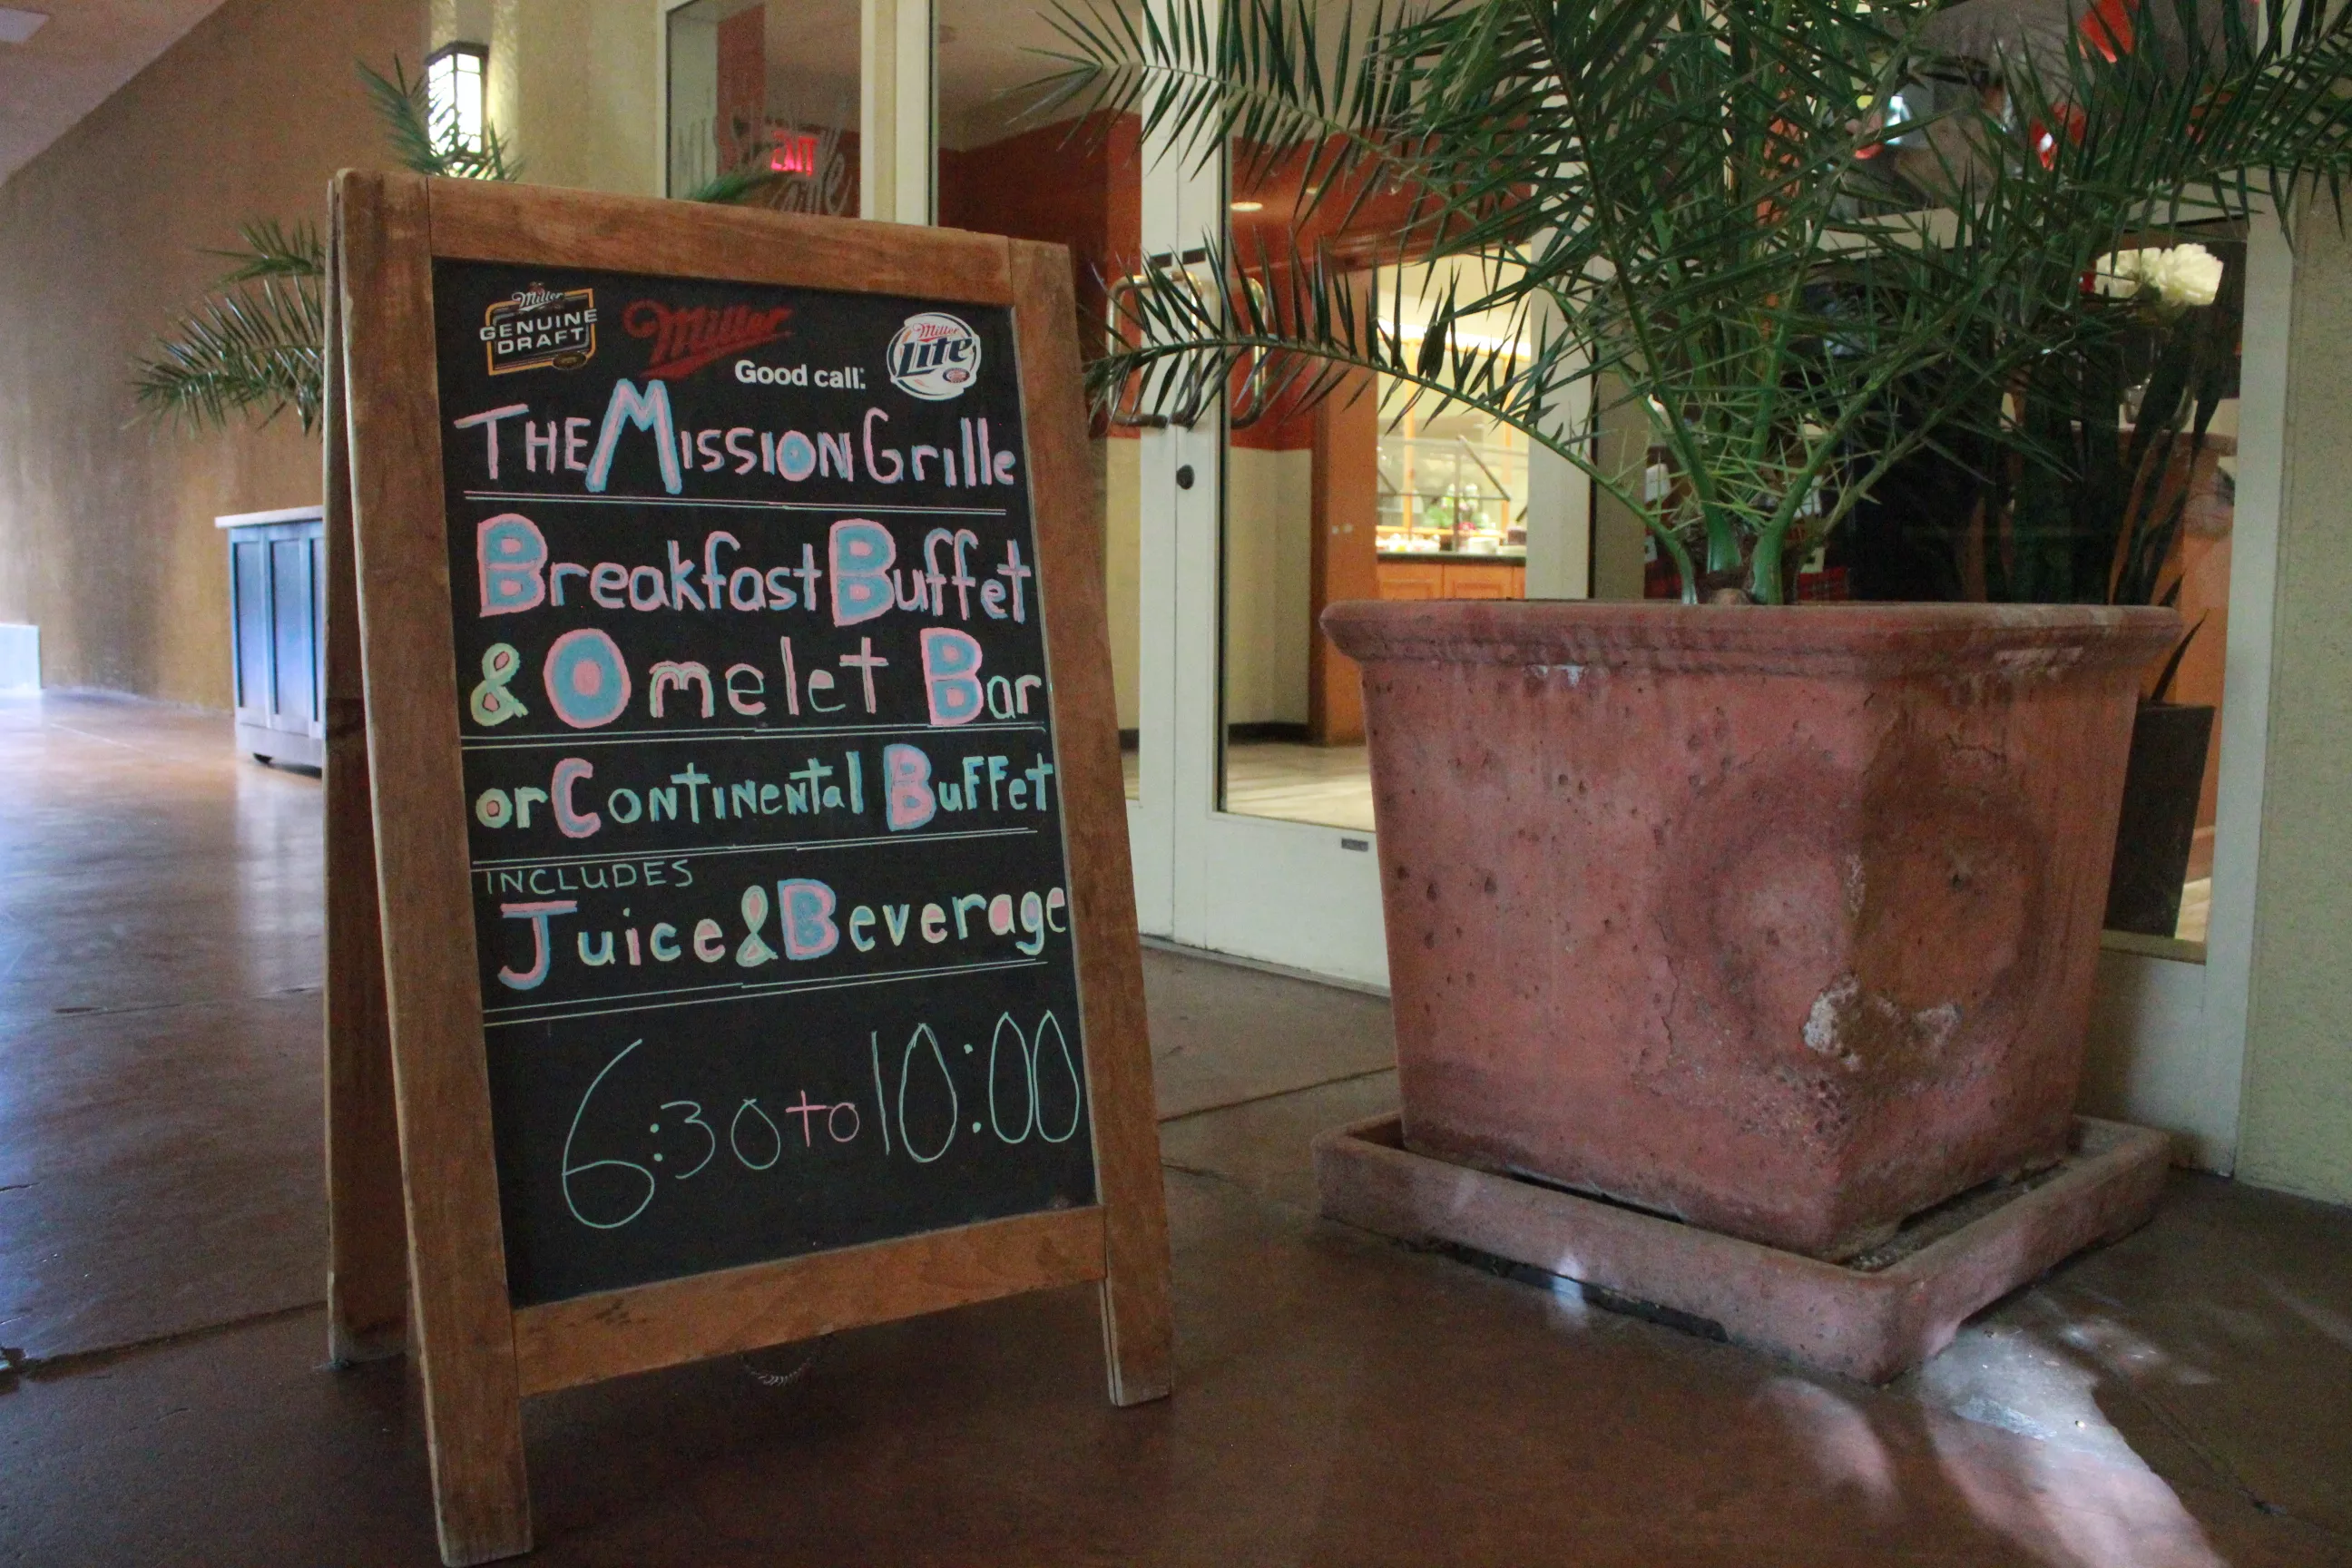 EXIT
Miller
GENUINE
DRAFT
Miller
Good call.
Miller
Lite
THE MISSION Grille
Breakfast Buffet
& Omelet Bar
or CONTINENTal BuFFet
INCLUDES
Juice & Beverage
6:30 to 10:00